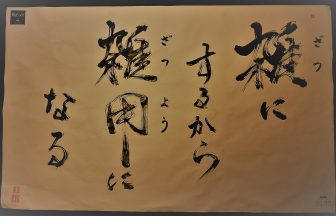 雑に
するから
雑用に
なる
ざつ
ざつよう